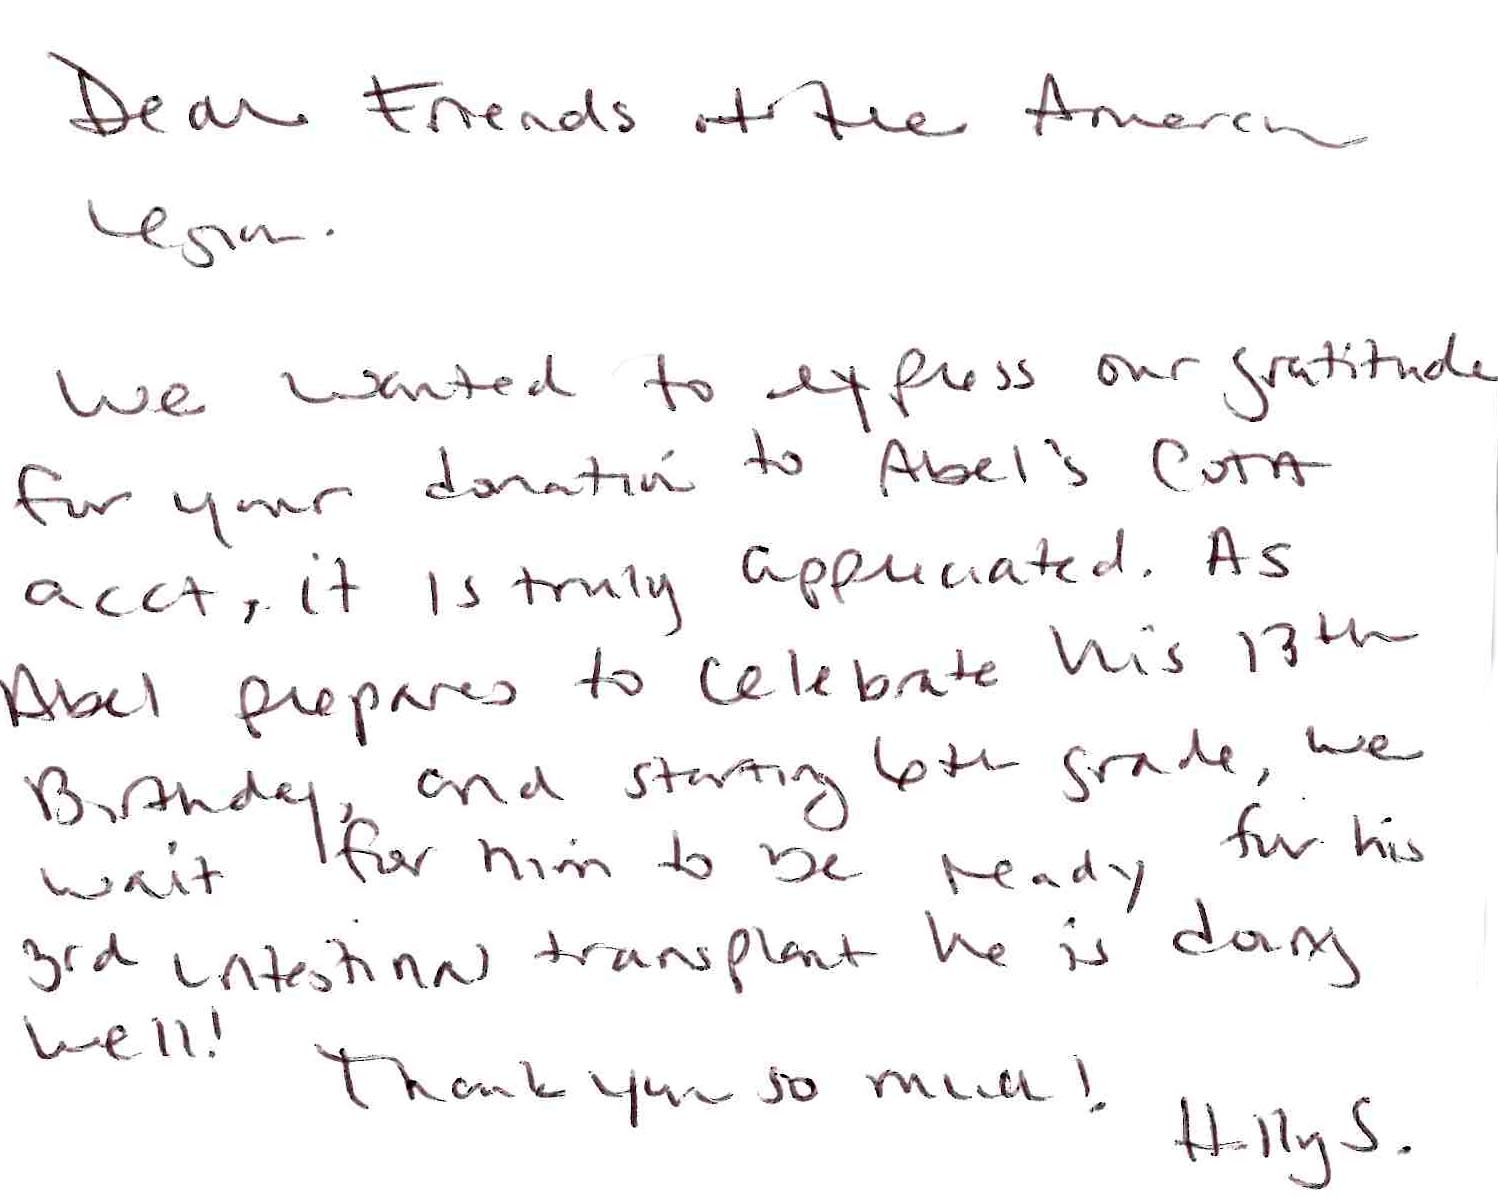 Dear Friends at the American
Legion.
We wanted to express our gratitude
for your donation to Abel's COTA
acct, it is truly appreciated. As
Abel prepares to celebrate his 13th
Birthday, and starting 6th grade, we
wait for him to be ready for his
3rd intestinal transplant he is doing
well!
Thank you so much!
Holly S.